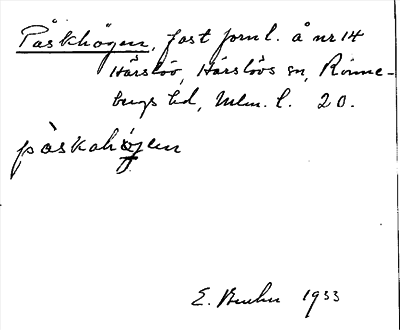 Påskhögen, fast fornl. å nr 14
Hårslöv, Hårslövs sn, Rönne-
bergs hd, Mlm. l. 20.
påskahögen
E. Bruhn 1933